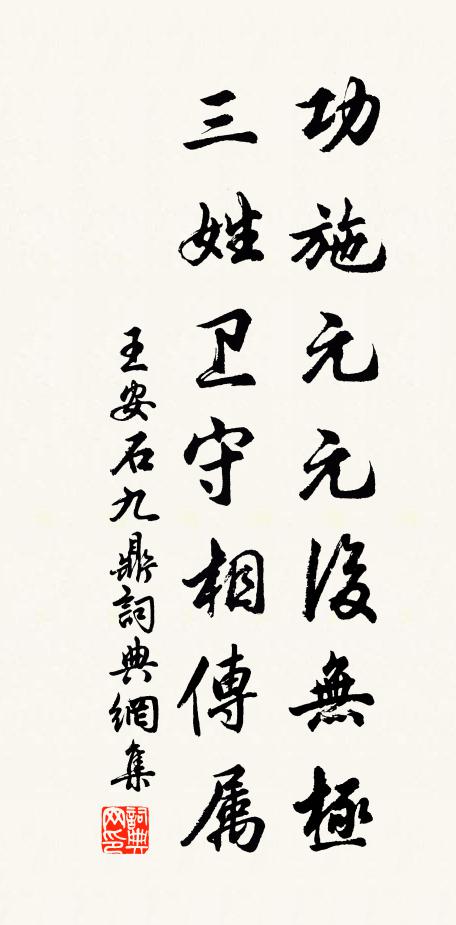 功施元元後無極
三姓卫守相傳属
王安石九鼎詞典網集
詞典網印